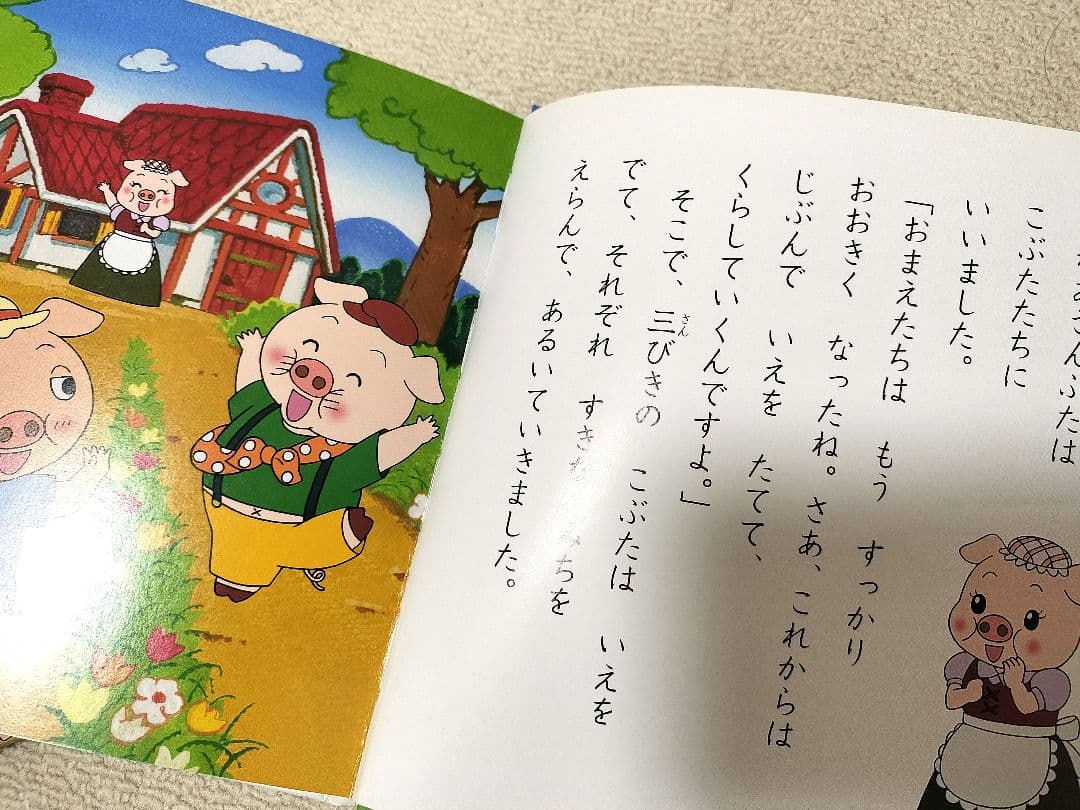 あさんぶたは
こぶたたちに
いいました。
「おまえたちは　もう　すっかり
おおきく　なったね。さあ、これからは
じぶんで　いえを　たてて、
くらしていくんですよ。」
そこで、三びきの　こぶたは　いえを
でて、それぞれ　すきな　みちを
えらんで、あるいていきました。